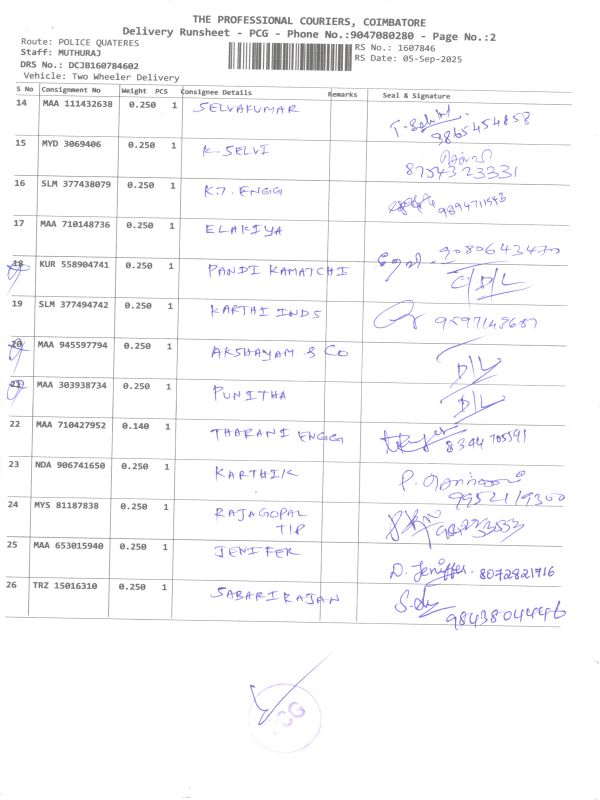 THE PROFESSIONAL COURIERS, COIMBATORE
Delivery Runsheet - PCG - Phone No.:9047080280 - Page No.:2
Route: POLICE QUATERES
RS No.: 1607846
Staff: MUTHURAJ
RS Date: 05-Sep-2025
DRS No.: DCJB160784602
Vehicle: Two Wheeler Delivery
S No Consignment No Weight PCS Consignee Details Remarks Seal & Signature
14 MAA 111432638 0.250 1 SELVAKUMAR
9865454858
15 MYD 3069406 0.250 1 K. SELVI
8754323331
16 SLM 377438079 0.250 1 K.T. ENGG
9894711543
17 MAA 710148736 0.250 1 ELAKIYA
9080643470
18 KUR 558904741 0.250 1 PANDI KAMATCHI C/D/L
19 SLM 377494742 0.250 1 KARTHI INDS
9597143687
20 MAA 945597794 0.250 1 AKSHAYAM & CO D/L
21 MAA 303938734 0.250 1 PUNITHA D/L
22 MAA 710427952 0.140 1 THARANI ENGG
8344 705591
23 NDA 906741650 0.250 1 KARTHIK
9952119300
24 MYS 81187838 0.250 1 RAJAGOPAL
TIP
25 MAA 653015940 0.250 1 JENIFER
D. Jeniffer. 8072821716
26 TRZ 15016310 0.250 1 SABARIRAJAN
9843804446
PCG